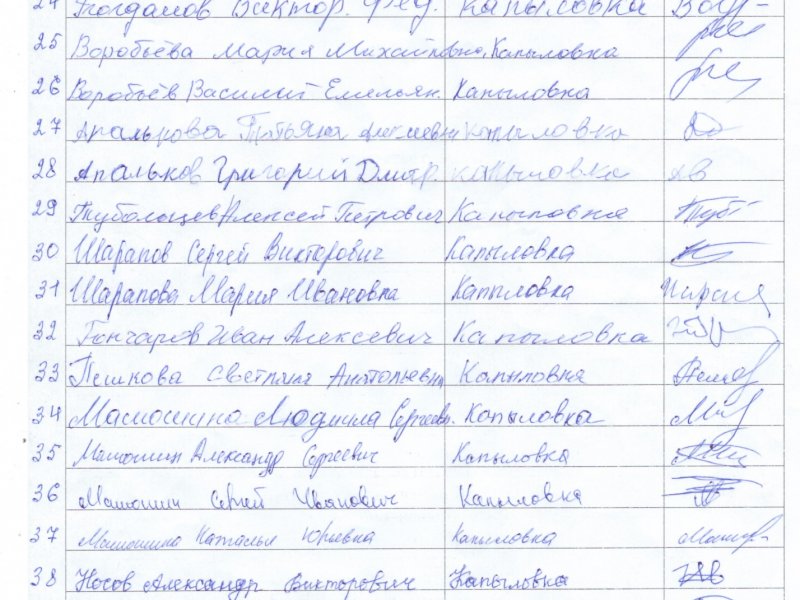 24 Богданов Виктор. Фёд. Капыловка
25 Воробьёва Мария Михайловна. Капыловка
26 Воробьёв Василий Емельян. Капыловка
27 Апалькова Татьяна Алексеевна Капыловка
28 Апальков Григорий Дмитр. Капыловка
29 Алексей Петрович Капыловка
30 Шарапов Сергей Викторович Капыловка
31 Шарапова Мария Ивановна Капыловка
32 Гончаров Иван Алексевич Капыловка
33 Пешкова Светлана Анатольевна Капыловка
34 Мамошина Людмила Сергеевн. Капыловка
35 Мамошин Александр Сергеевич Капыловка
36 Мамошин Сергей Иванович Капыловка
37 Мамошина Наталья Юрьевна Капыловка
38 Носов Александр Викторович Капыловка